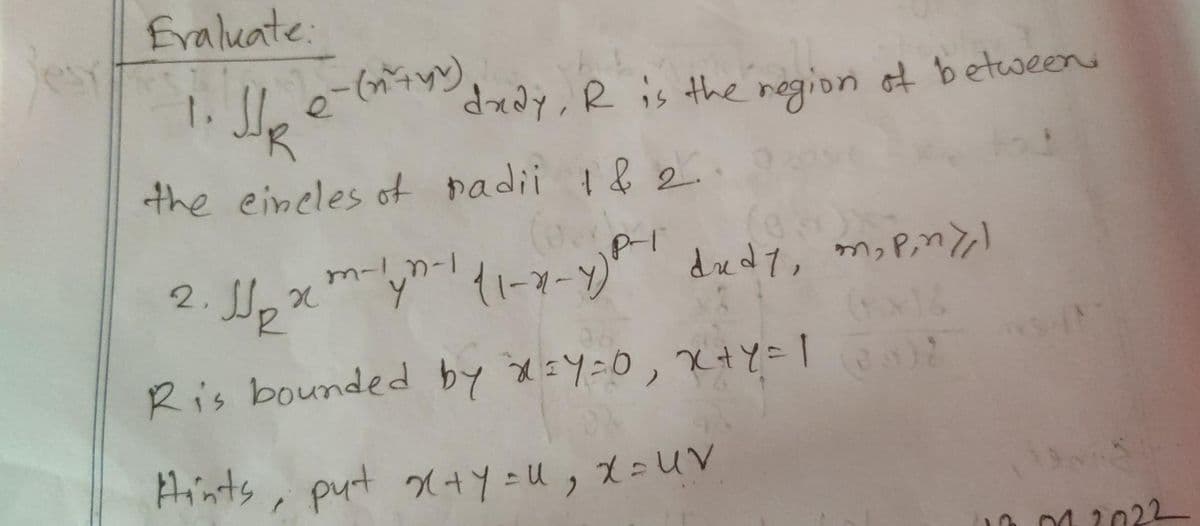 Evaluate:
1. ∬_R e^{-(x²+y²)} dxdy, R is the region of between
the circles of radii 1 & 2.
2. ∬_R x^{m-1} y^{n-1} (1-x-y)^{p-1} dxdy, m, p, n ≥ 1
R is bounded by x=y=0, x+y=1
Hints, put x+y=u, x=uv
2022